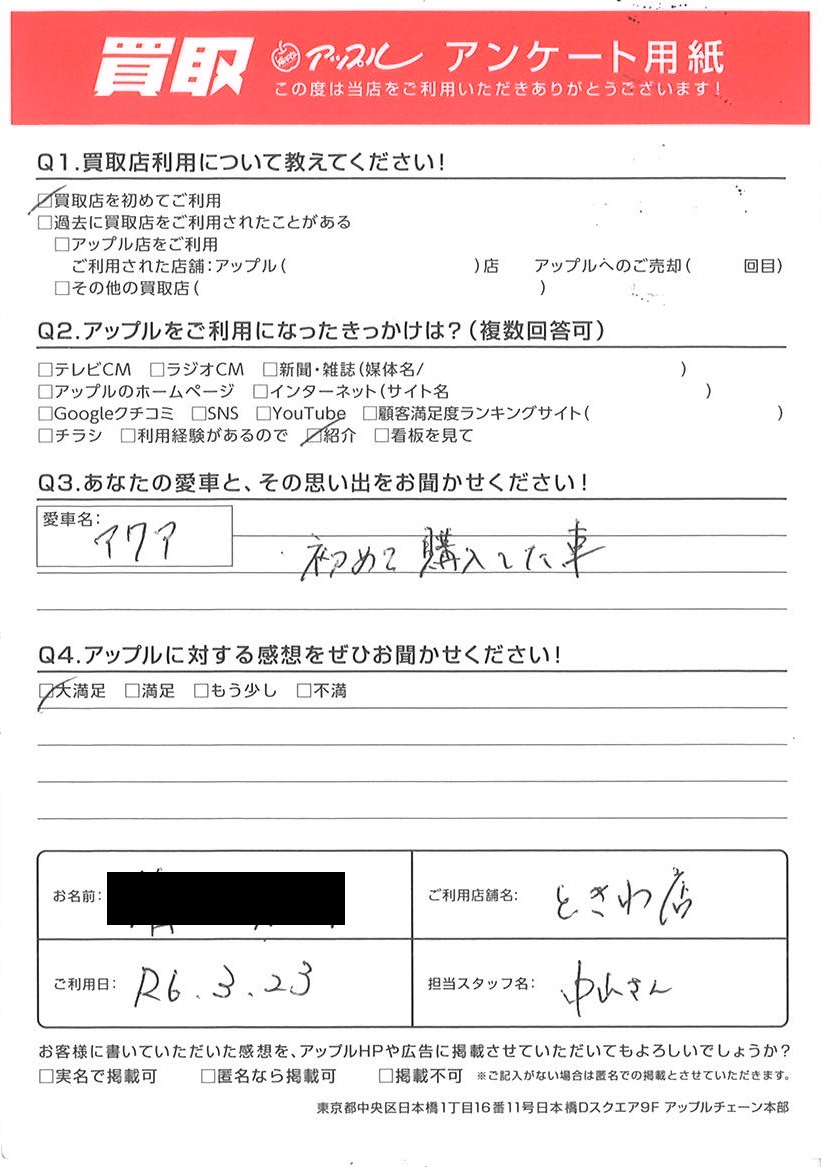 買取 アップル アンケート用紙
この度は当店をご利用いただきありがとうございます!
Q1.買取店利用について教えてください!
☑買取店を初めてご利用
□過去に買取店をご利用されたことがある
□アップル店をご利用
ご利用された店舗:アップル( )店 アップルへのご売却( 回目)
□その他の買取店( )
Q2.アップルをご利用になったきっかけは?(複数回答可)
□テレビCM □ラジオCM □新聞・雑誌(媒体名/ )
□アップルのホームページ □インターネット(サイト名 )
□Googleクチコミ □SNS □YouTube □顧客満足度ランキングサイト( )
□チラシ □利用経験があるので ☑紹介 □看板を見て
Q3.あなたの愛車と、その思い出をお聞かせください!
愛車名: アクア
初めて購入した車
Q4.アップルに対する感想をぜひお聞かせください!
☑大満足 □満足 □もう少し □不満
お名前: ご利用店舗名: ときわ店
ご利用日: R6.3.23 担当スタッフ名: 中山さん
お客様に書いていただいた感想を、アップルHPや広告に掲載させていただいてもよろしいでしょうか?
□実名で掲載可 □匿名なら掲載可 □掲載不可 ※ご記入がない場合は匿名での掲載とさせていただきます。
東京都中央区日本橋1丁目16番11号日本橋Dスクエア9F アップルチェーン本部